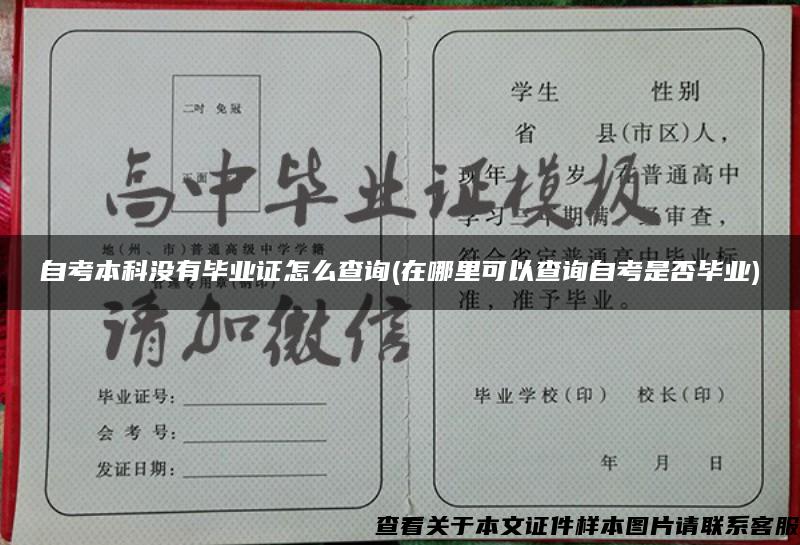 二吋 免冠
正面
地(州、市)普通高级中学学籍
管理专用章(钢印)
毕业证号:
会考号:
发证日期:
学生 性别
省 县(市区)人,
现年 岁,在普通高中
学习三年期满 审查,
符合省定普通高中毕业标
准,准予毕业。
毕业学校(印) 校长(印)
年 月 日
高中毕业证模板
请加微信
自考本科没有毕业证怎么查询(在哪里可以查询自考是否毕业)
查看关于本文证件样本图片请联系客服